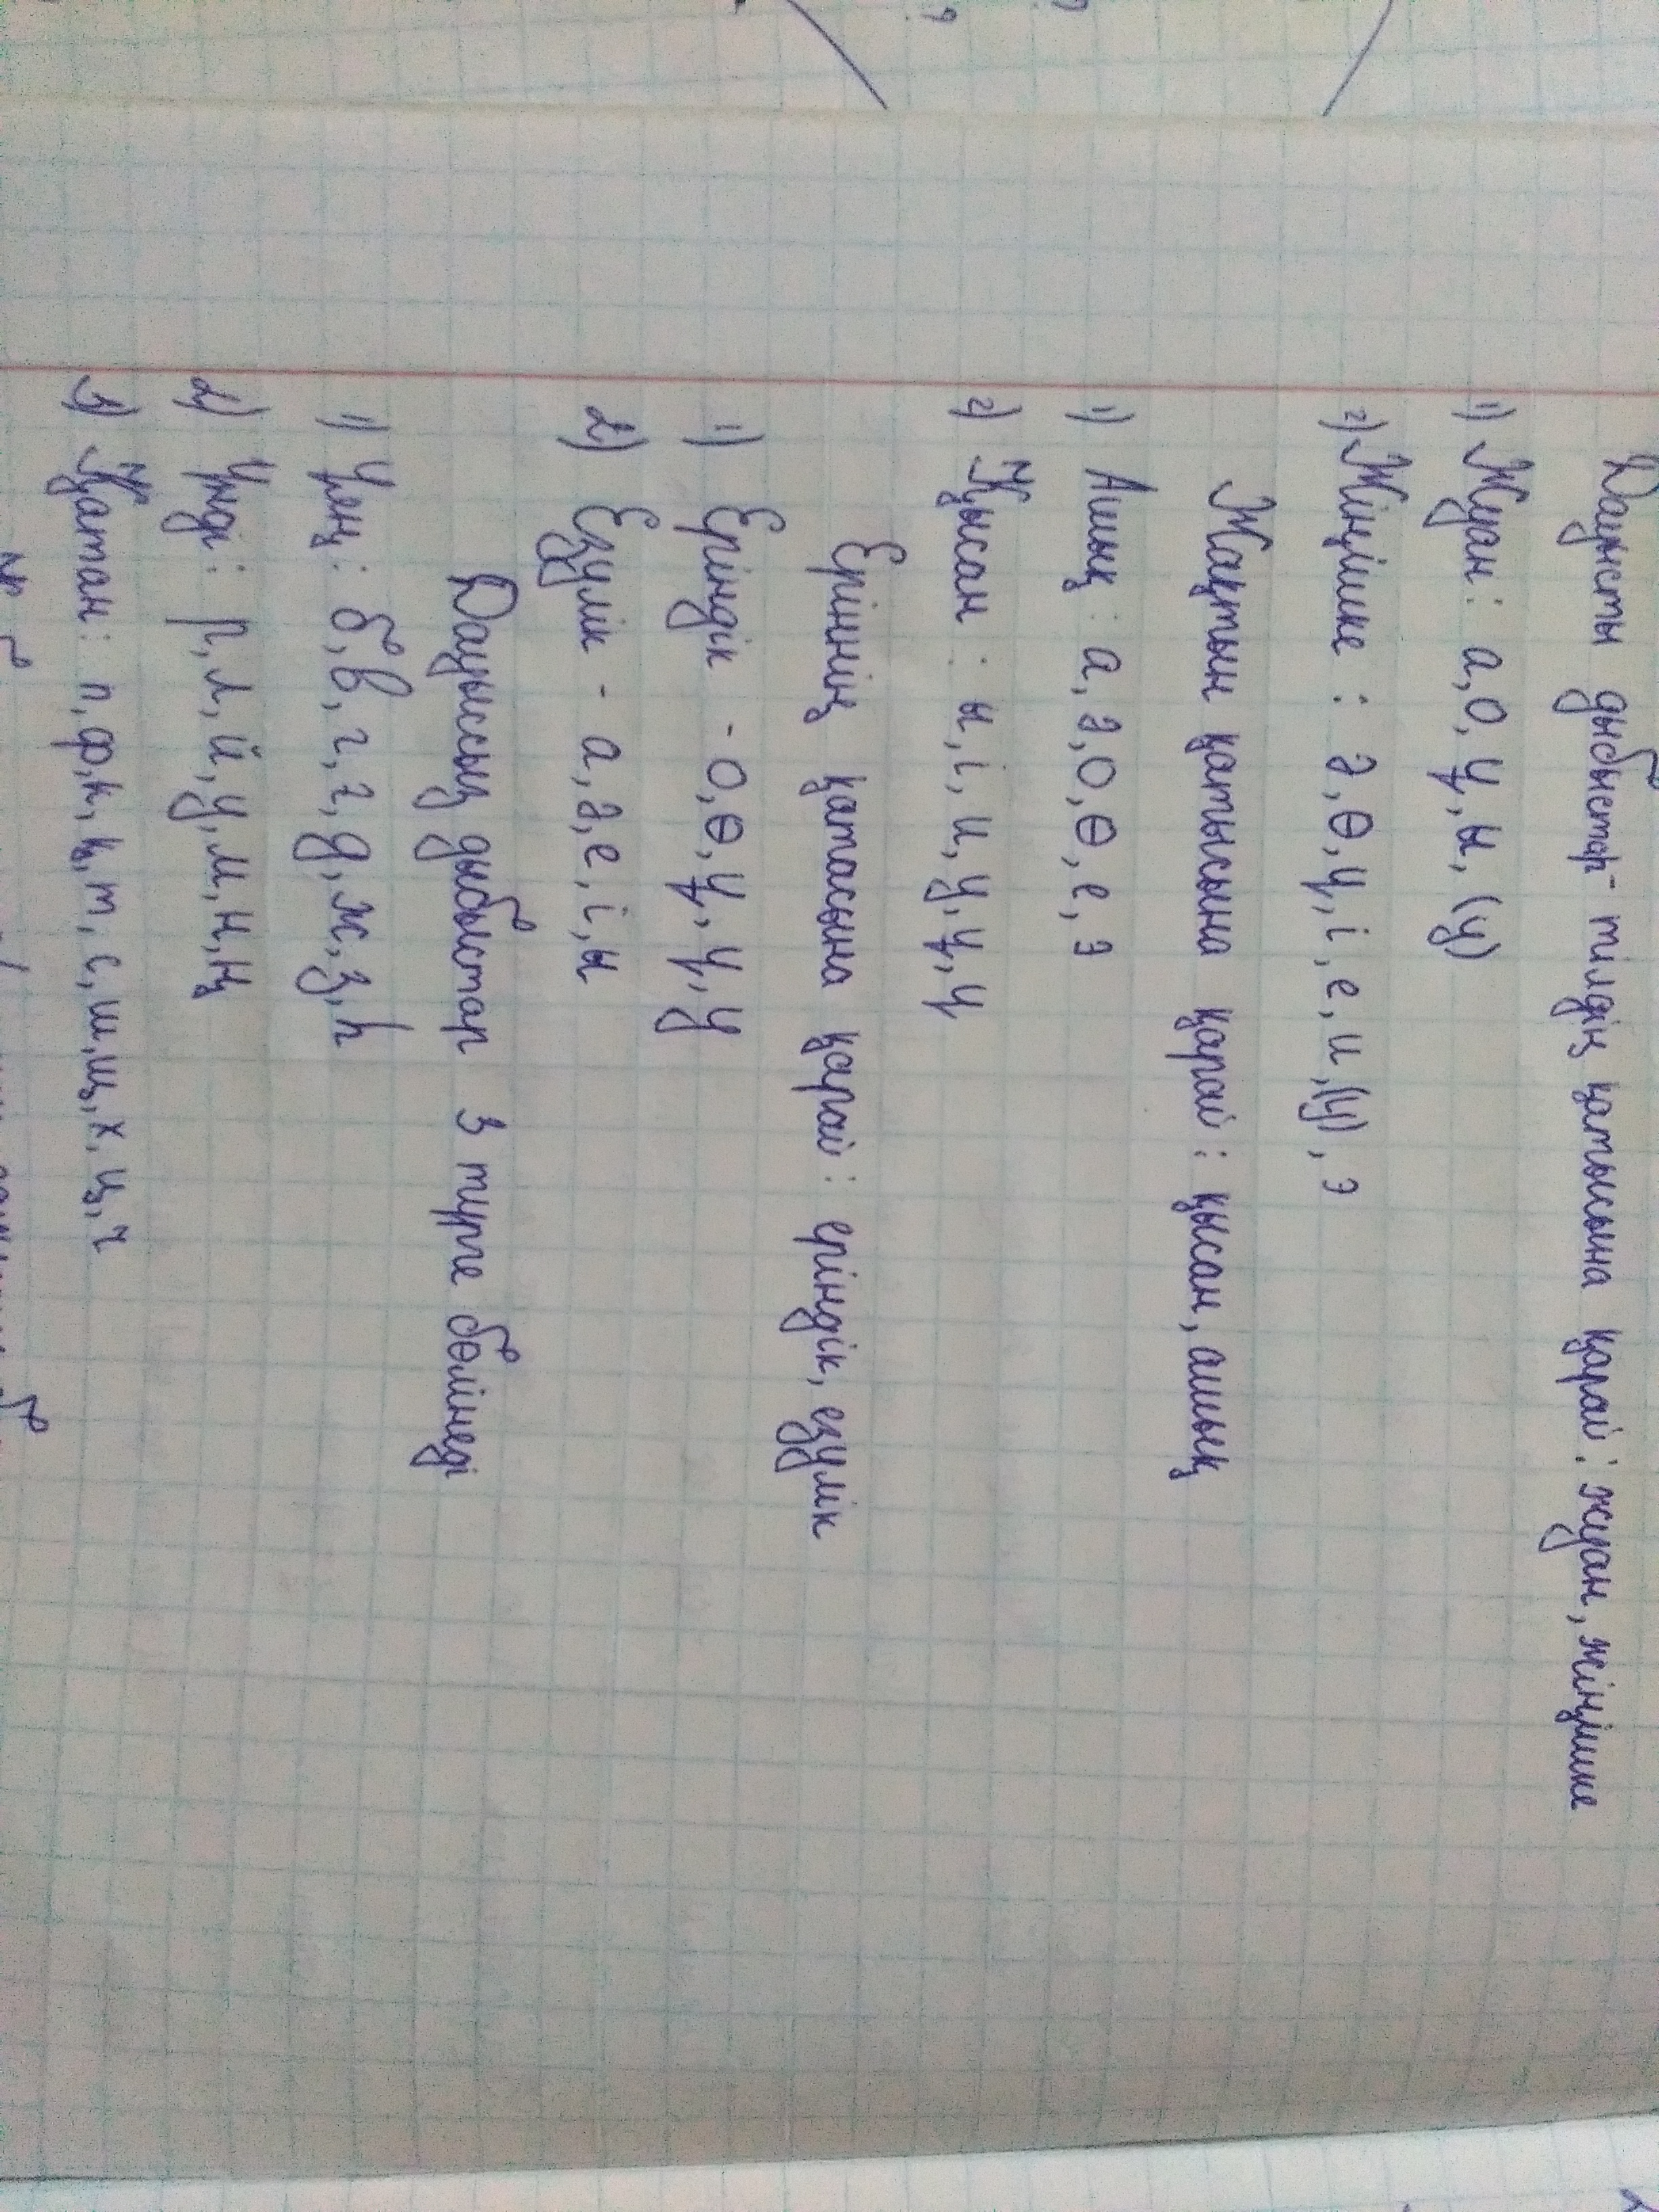 Дауысты дыбыстар- тілдің қатысына қарай: жуан, жіңішке
1) Жуан: а, о, ұ, ы, (у)
2) Жіңішке: ә, ө, ү, і, е, и, (у), э
Жақтың қатысына қарай: қысаң, ашық
1) Ашық: а, ә, о, ө, е, э
2) Қысаң: ы, і, и, у, ұ, ү
Еріннің қатасына қарай: еріндік, езулік
1) Еріндік - о, ө, ұ, ү, у
2) Езулік - а, ә, е, і, ы
Дауыссыз дыбыстар 3 түрге бөлінеді
1) Ұяң: б, в, г, ғ, д, ж, з, һ
2) Үнді: р, л, й, у, м, н, ң
3) Қатаң: п, ф, к, қ, т, с, ш, щ, х, ц, ч